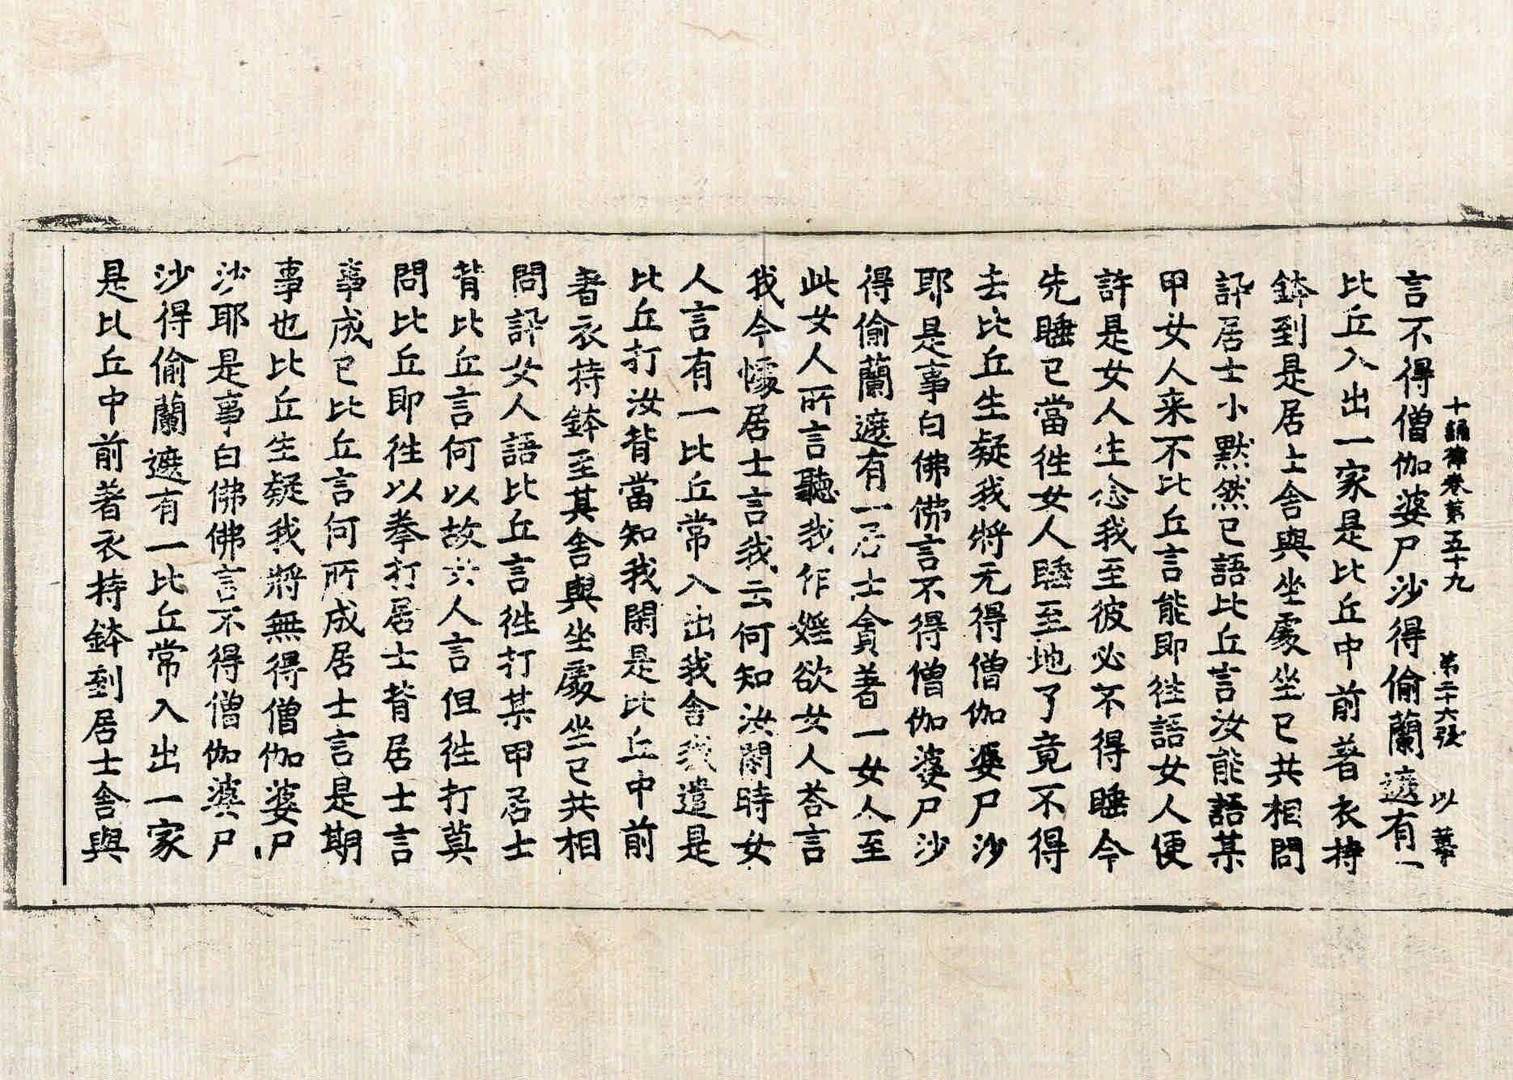 十誦律卷第五十九 第二十六張 以
言不得僧伽婆尸沙得偷蘭遮有一
比丘入出一家是比丘中前著衣持
鉢到是居士舍與坐處坐已共相問
訊居士小默然已語比丘言汝能語某
甲女人来不比丘言能即徃語女人便
許是女人生念我至彼必不得睡今
先睡已當徃女人睡至地了竟不得
去比丘生疑我將无得僧伽婆尸沙
耶是事白佛佛言不得僧伽婆尸沙
得偷蘭遮有一居士貪著一女人至
此女人所言聽我作婬欲女人荅言
我今懅居士言我云何知汝閑時女
人言有一比丘常入出我舍我遣是
比丘打汝背當知我閑是比丘中前
著衣持鉢至其舍與坐處坐已共相
問訊女人語比丘言徃打某甲居士
背比丘言何以故女人言但徃打莫
問比丘即徃以拳打居士背居士言
事成已比丘言何所成居士言是期
事也比丘生疑我將無得僧伽婆尸
沙耶是事白佛佛言不得僧伽婆尸
沙得偷蘭遮有一比丘常入出一家
是比丘中前著衣持鉢到居士舍與